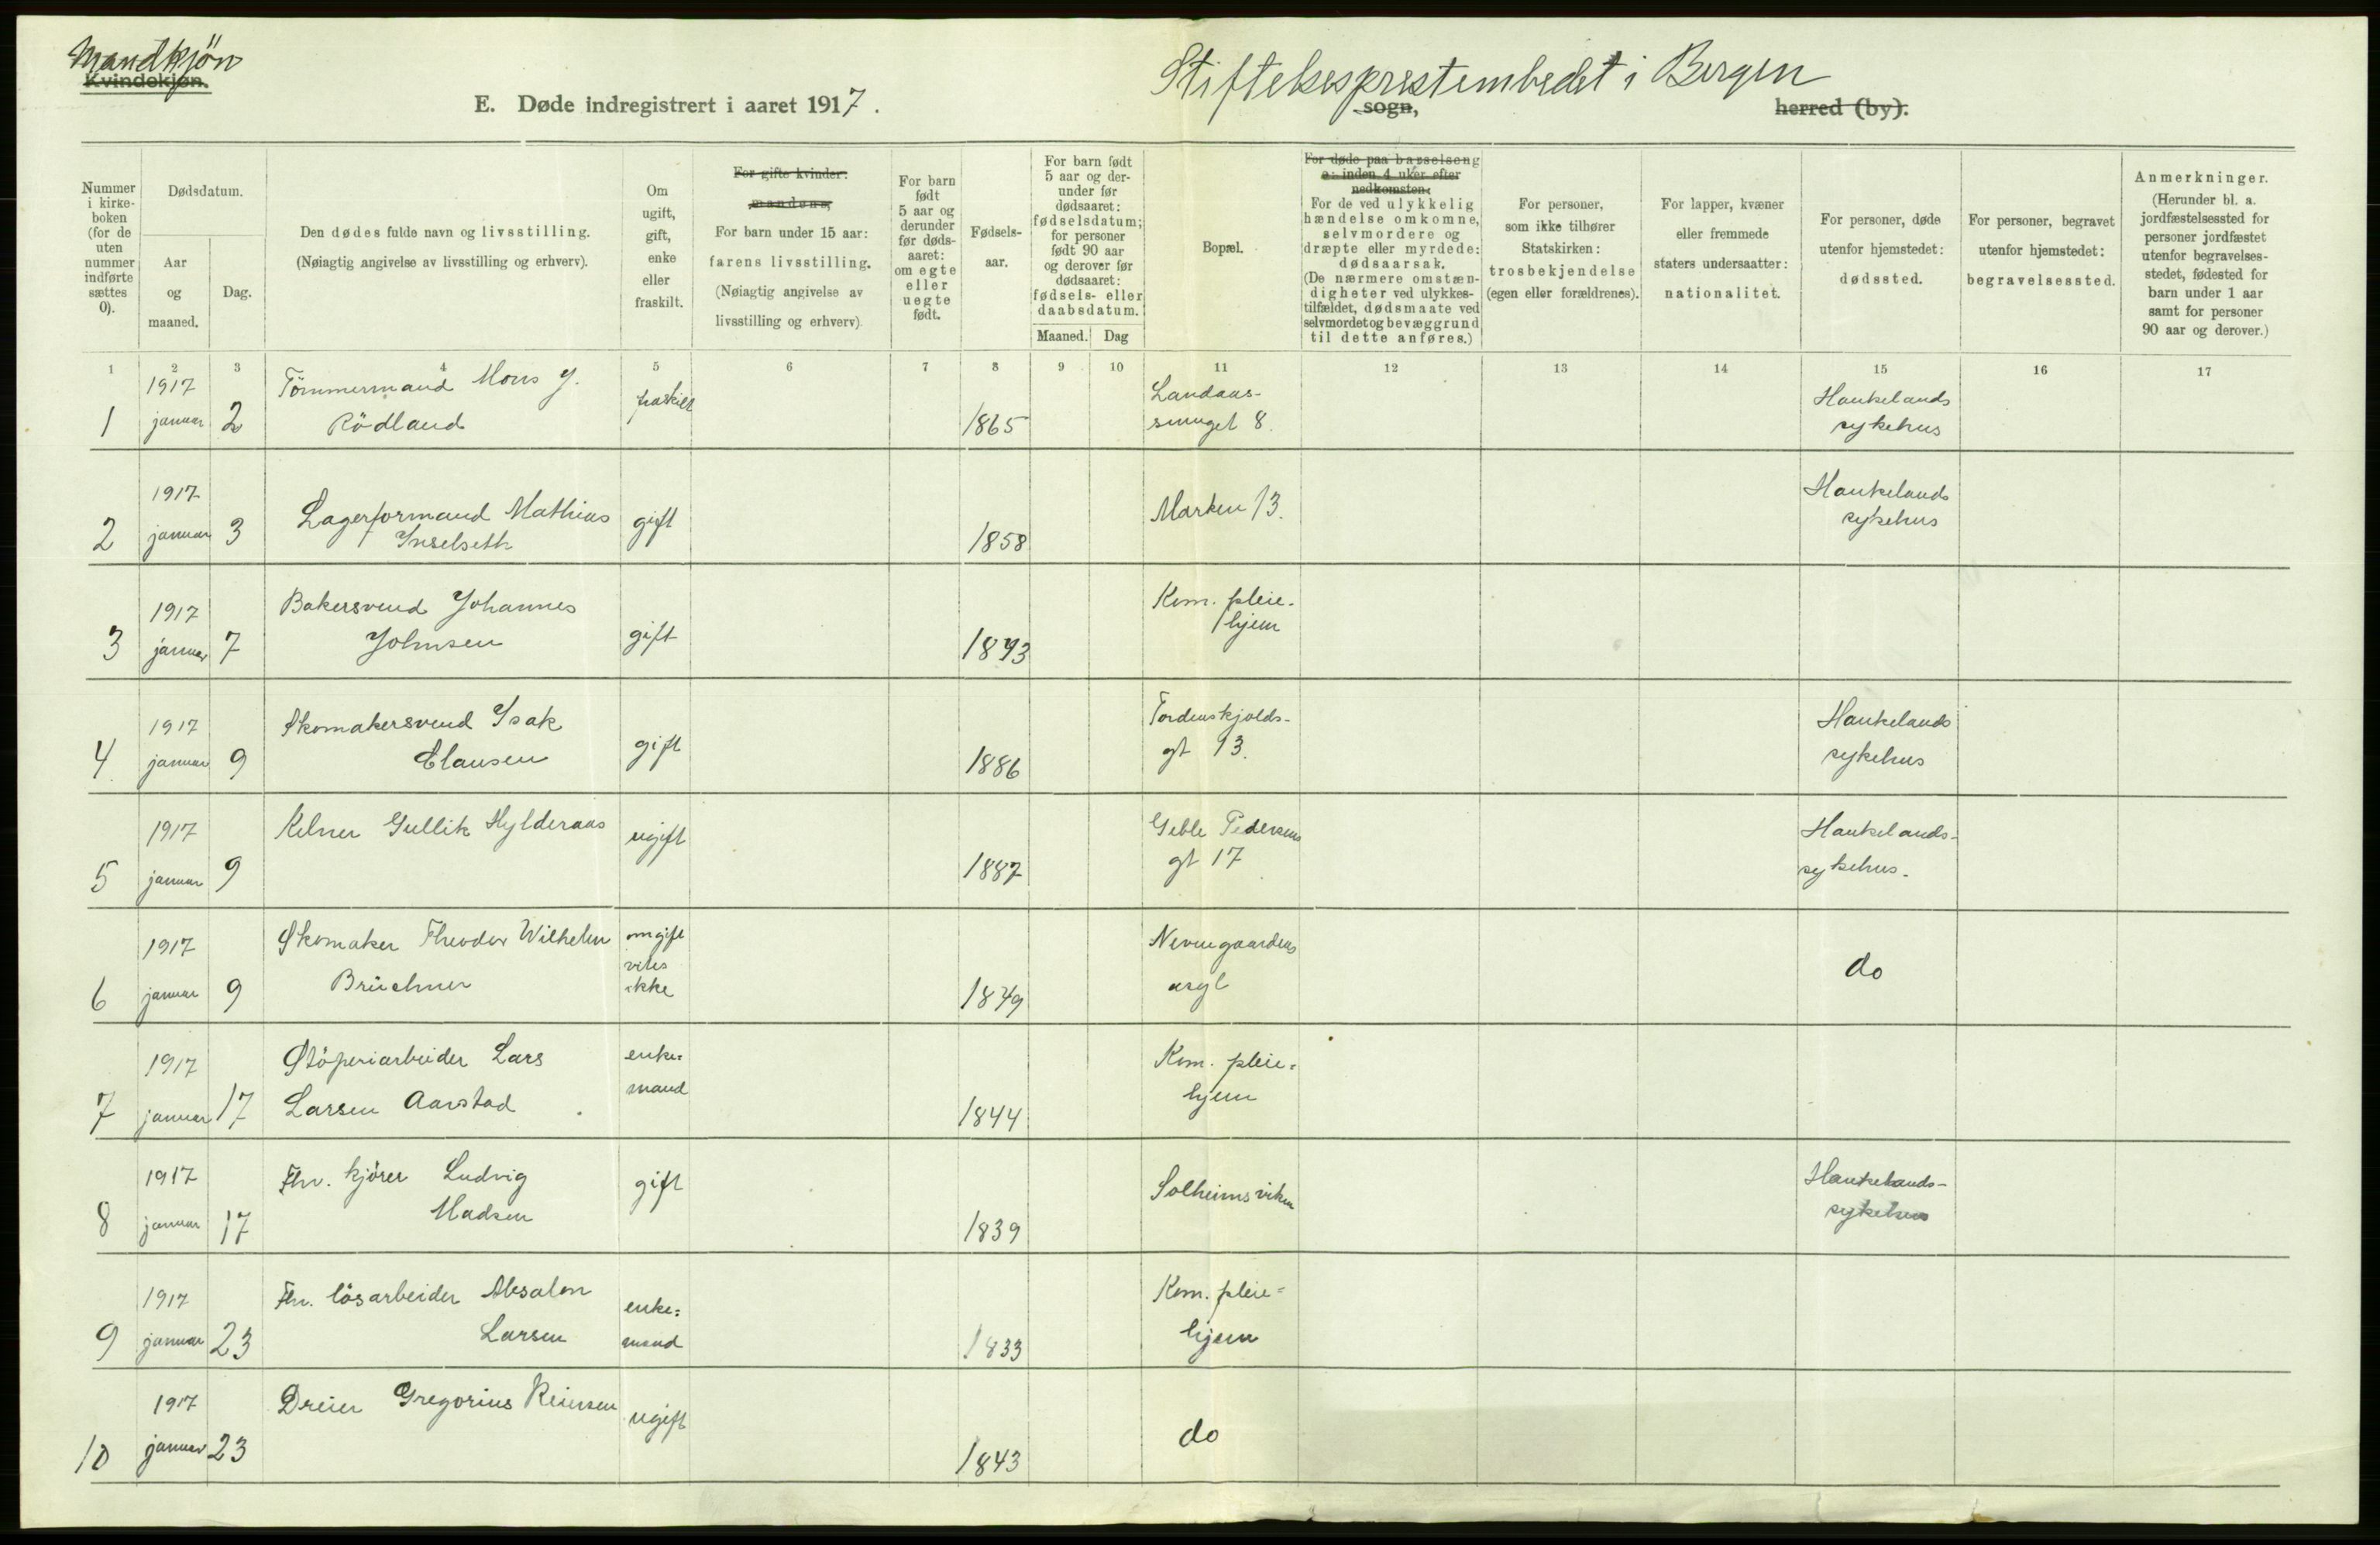 Mandkjön
Kvindekjøn.
Stiftelsesprestembedet i Bergen
E. Døde indregistrert i aaret 1917.
sogn,
herred (by).
Nummer
i kirke-
boken
(for de
uten
nummer
indførte
sættes
0).
Dødsdatum.
Aar
og
maaned.
Dag.
Den dødes fulde navn og livsstilling.
(Nøiagtig angivelse av livsstilling og erhverv).
Om
ugift,
gift,
enke
eller
fraskilt.
For gifte kvinder:
mandens,
For barn under 15 aar:
farens livsstilling.
(Nøiagtig angivelse av
livsstilling og erhverv).
For barn
født
5 aar og
derunder
før døds-
aaret:
om egte
eller
uegte
født.
Fødsels-
aar.
For barn født
5 aar og der-
under før
dødsaaret:
fødselsdatum;
for personer
født 90 aar
og derover før
dødsaaret:
fødsels- eller
daabsdatum.
Maaned.
Dag
Bopæl.
For døde paa barselseng
o: inden 4 uker efter
nedkomsten:
For de ved ulykkelig
hændelse omkomne,
selvmordere og
dræpte eller myrdede:
dødsaarsak.
(De nærmere omstæn-
digheter ved ulykkes-
tilfældet, dødsmaate ved
selvmordet og bevæggrund
til dette anføres.)
For personer,
som ikke tilhører
Statskirken:
trosbekjendelse
(egen eller forældrenes).
For lapper, kvæner
eller fremmede
staters undersaatter:
nationalitet.
For personer, døde
utenfor hjemstedet:
dødssted.
For personer, begravet
utenfor hjemstedet:
begravelsessted.
Anmerkninger.
(Herunder bl. a.
jordfæstelsessted for
personer jordfæstet
utenfor begravelses-
stedet, fødested for
barn under 1 aar
samt for personer
90 aar og derover.)
1 2 3 4 5 6 7 8 9 10 11 12 13 14 15 16 17
1917 Tömmermand Mons J. fraskilt Landaas- Haukelands
1 januar 2 Rödland 1865 smuget 8. sykehus
1917 Haukelands
2 januar 3 Lagerformand Mathias gift 1858 Marken 13. sykehus
Inselseth
1917 Bakersvend Johannes Kom. pleie-
3 januar 7 Johnsen gift 1893 hjem
1917 Skomakersvend Isak Tordenskjolds- Haukelands
4 januar 9 Clausen gift 1886 gt 13. sykehus
1917 Kelner Gullik Hylderaas ugift Geble Pedersens Haukelands-
5 januar 9 1887 gt 17 sykehus.
1917 Skomaker Theodor Wilhelm om gift Nevengaardens
vites
6 januar 9 Brüchner ikke 1849 asyl do
1917 Stöperiarbeider Lars enke= Kom. pleie=
7 januar 17 Larsen Aarstad mand 1844 hjem
1917 Fhv. kjörer Ludvig gift Solheimsviken Haukelands-
8 januar 17 Madsen 1839 sykehus
1917 Fhv. lösarbeider Absalon enke= Kom. pleie=
9 januar 23 Larsen mand 1833 hjem
1917 Dreier Gregorius Reiersen ugift do
10 januar 23 1843